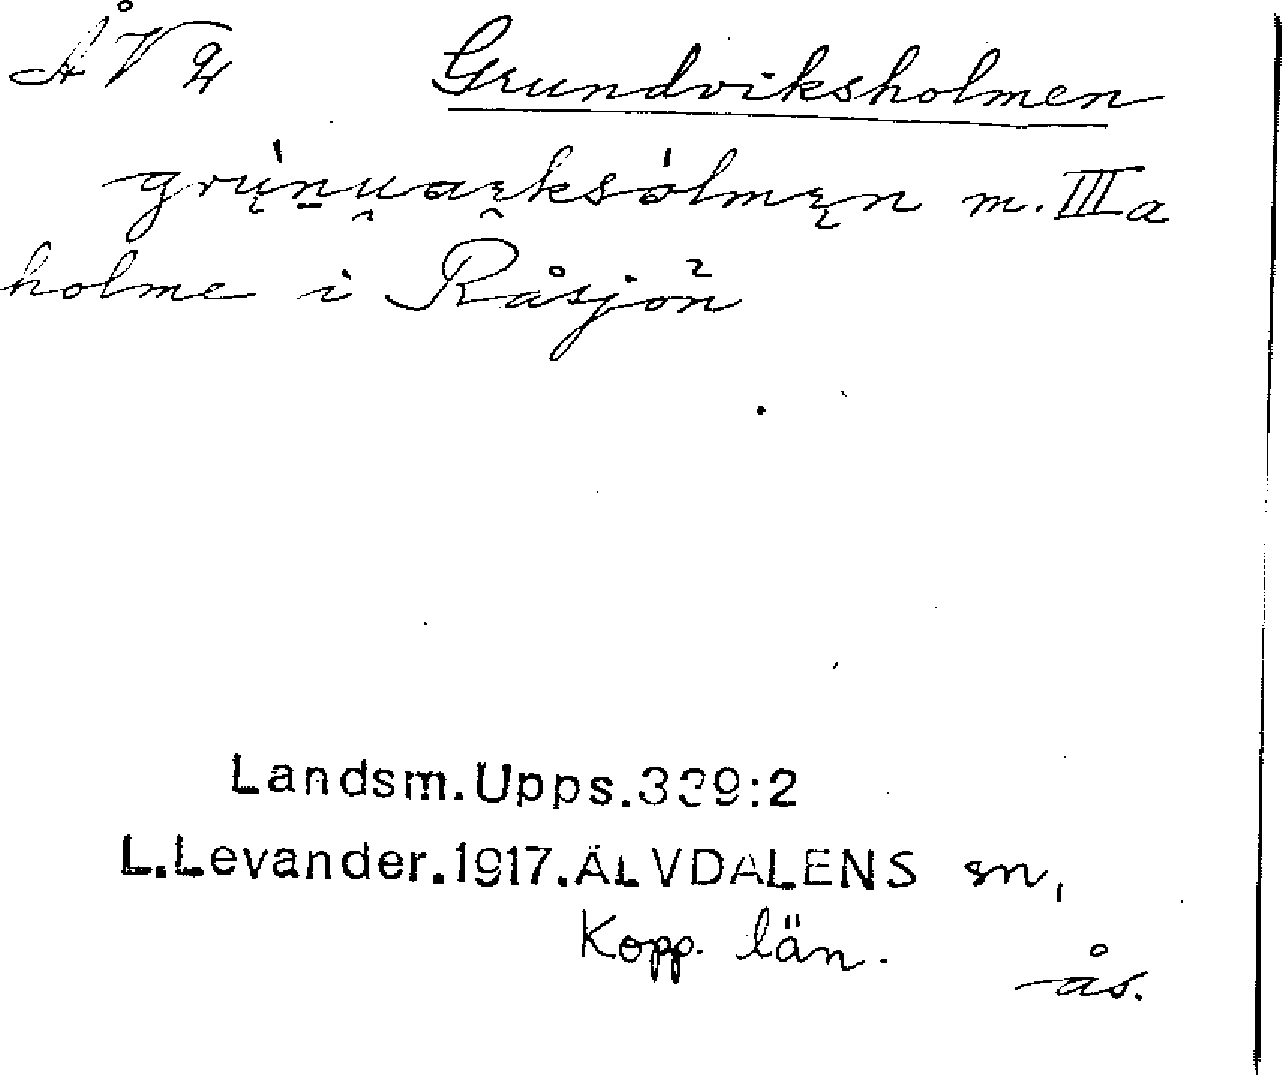 ÅV Grundviksholmen
m. III a
holme i Råsjön
Landsm. Upps. 339:2
L. Levander. 1917. ÄLVDALENS sn,
Kopp. län.
ås.